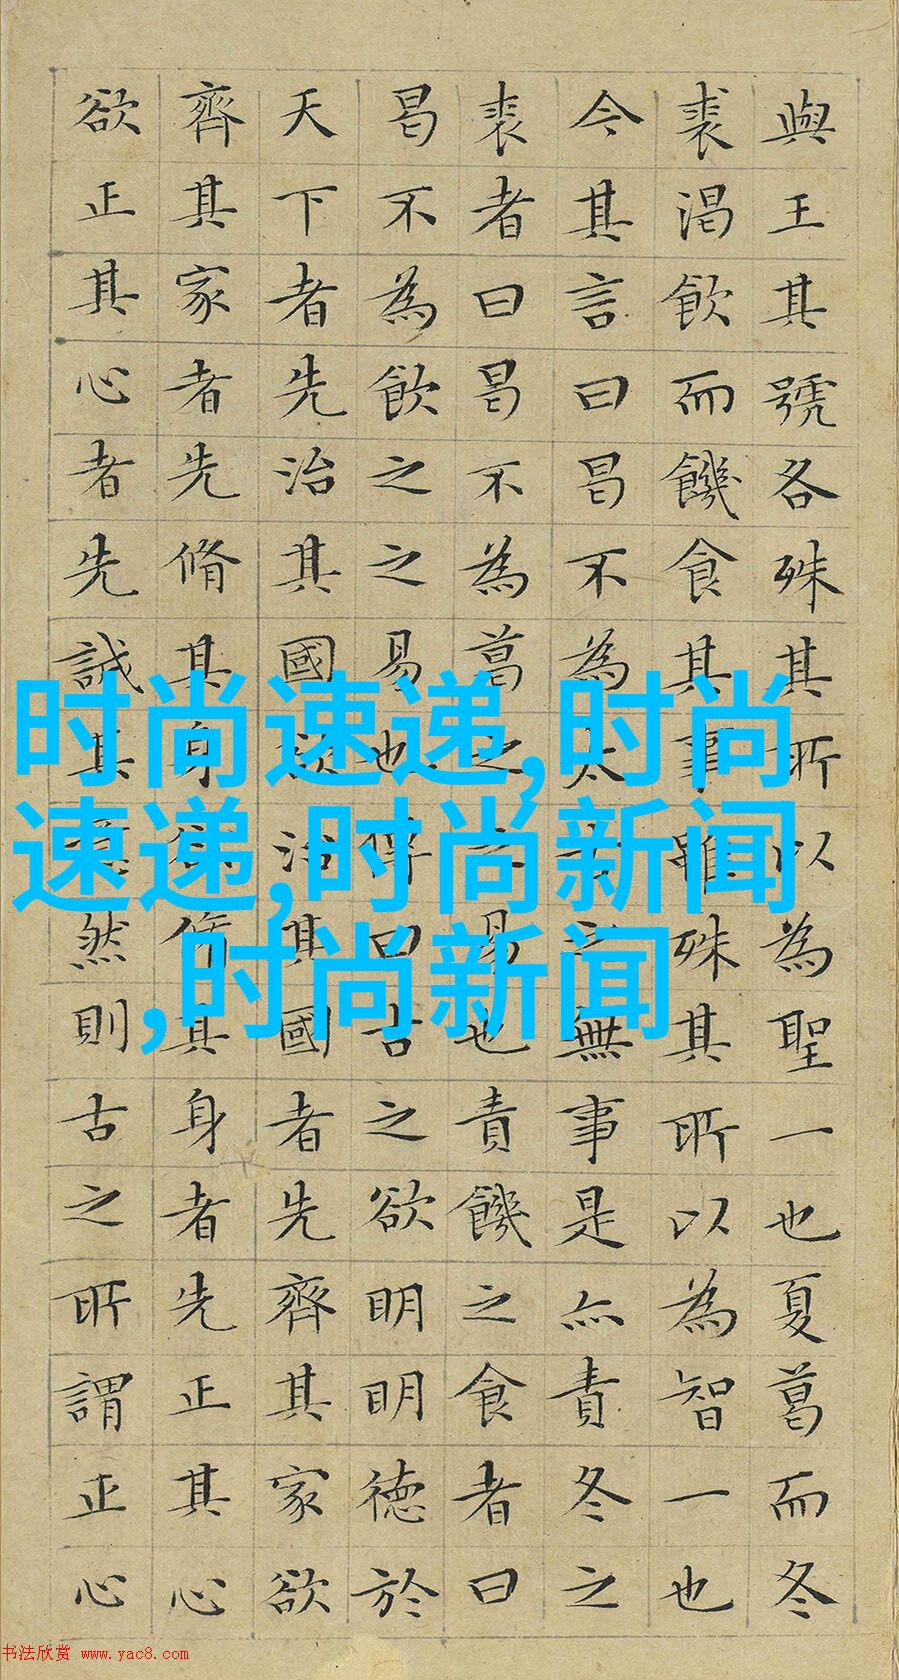 與王其號各殊其所以為聖一也夏葛而冬
裘渴飲而饑食其事雖殊其所以為智一也
今其言曰曷不為太古之無事是亦責冬之
裘者曰曷不為葛之之易也責饑之食者曰
曷不為飲之之易也傳曰古之欲明明德於
天下者先治其國欲治其國者先齊其家欲
齊其家者先脩其身欲脩其身者先正其心
欲正其心者先誠其意然則古之所謂正心
时尚速递,时尚
速递,时尚新闻
,时尚新闻
书法欣赏 www.yac8.com